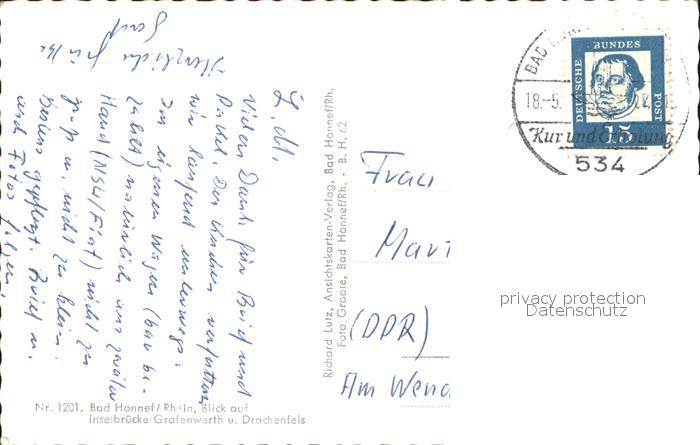 Herzliche Grüße
L. M.
Vielen Dank für Brief und
Paket. Der Kuchen
wir laufend unterwegs.
Im eigenen Wagen (bar be-
zahlt) natürlich aus zweiter
Hand (NSU/Fiat) nicht zu
groß u. nicht zu klein.
Bestens gepflegt. Brief u.
und Fotos folgen
Nr. 1201. Bad Honnef/Rhein, Blick auf
Inselbrücke Grafenwerth u. Drachenfels
Richard Lutz, Ansichtskarten-Verlag, Bad Honnef/Rh.
Foto Groote, Bad Honnef/Rh. · B. H. 62
BAD
18.-5.
Kur und Erholung
534
DEUTSCHE
BUNDES
POST
15
Frau
Mart
(DDR)
Am Wend
privacy protection
Datenschutz